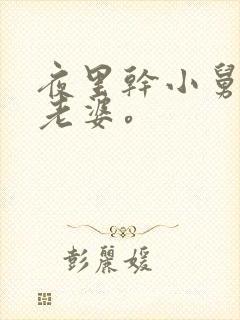 夜里幹小舅
老婆。
彭麗媛